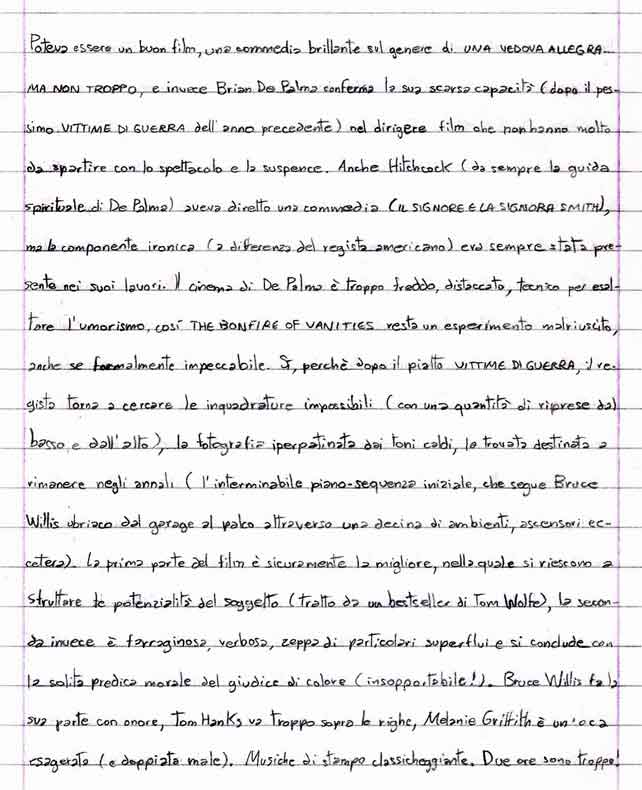 Poteva essere un buon film, una commedia brillante sul genere di UNA VEDOVA ALLEGRA...
MA NON TROPPO, e invece Brian De Palma conferma la sua scarsa capacità (dopo il pes-
simo VITTIME DI GUERRA dell'anno precedente) nel dirigere film che non hanno molto
da spartire con lo spettacolo e la suspence. Anche Hitchcock (da sempre la guida
spirituale di De Palma) aveva diretto una commedia (IL SIGNORE E LA SIGNORA SMITH),
ma la componente ironica (a differenza del regista americano) era sempre stata pre-
sente nei suoi lavori. Il cinema di De Palma è troppo freddo, distaccato, tecnico per esal-
tare l'umorismo, così THE BONFIRE OF VANITIES resta un esperimento malriuscito,
anche se formalmente impeccabile. Sì, perchè dopo il piatto VITTIME DI GUERRA, il re-
gista torna a cercare le inquadrature impossibili (con una quantità di riprese dal
basso e dall'alto), la fotografia iperpatinata dai toni caldi, la trovata destinata a
rimanere negli annali (l'interminabile piano-sequenza iniziale, che segue Bruce
Willis ubriaco dal garage al palco attraverso una decina di ambienti, ascensori ec-
cetera). La prima parte del film è sicuramente la migliore, nella quale si riescono a
sfruttare le potenzialità del soggetto (tratto da un bestseller di Tom Wolfe), la secon-
da invece è farraginosa, verbosa, zeppa di particolari superflui e si conclude con
la solita predica morale del giudice di colore (insopportabile!). Bruce Willis fa la
sua parte con onore, Tom Hanks va troppo sopra le righe, Melanie Griffith è un'oca
esagerata (e doppiata male). Musiche di stampo classicheggiante. Due ore sono troppe!